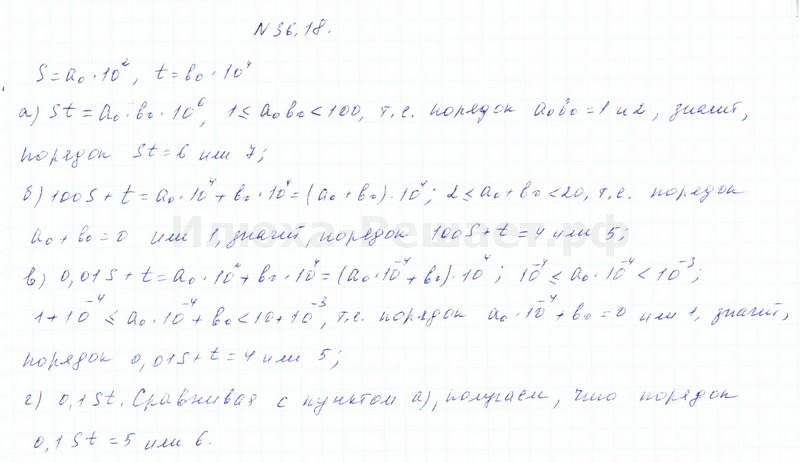 N 36.18.
S = a₀ · 10², t = b₀ · 10⁴
а) St = a₀ · b₀ · 10⁶, 1 ≤ a₀b₀ < 100, т.е. порядок a₀b₀ = 1 и 2, значит,
порядок St = 6 или 7;
б) 100S + t = a₀ · 10⁴ + b₀ · 10⁴ = (a₀ + b₀) · 10⁴; 2 ≤ a₀ + b₀ < 20, т.е. порядок
a₀ + b₀ = 0 или 1, значит, порядок 100S + t = 4 или 5;
в) 0,01S + t = a₀ · 10⁰ + b₀ · 10⁴ = (a₀ · 10⁻⁴ + b₀) · 10⁴; 10⁻⁴ ≤ a₀ · 10⁻⁴ < 10⁻³;
1 + 10⁻⁴ ≤ a₀ · 10⁻⁴ + b₀ < 10 + 10⁻³, т.е. порядок a₀ · 10⁻⁴ + b₀ = 0 или 1, значит,
порядок 0,01S + t = 4 или 5;
г) 0,1St. Сравнивая с пунктом а), получаем, что порядок
0,1St = 5 или 6.
Илюха-Решает.рф